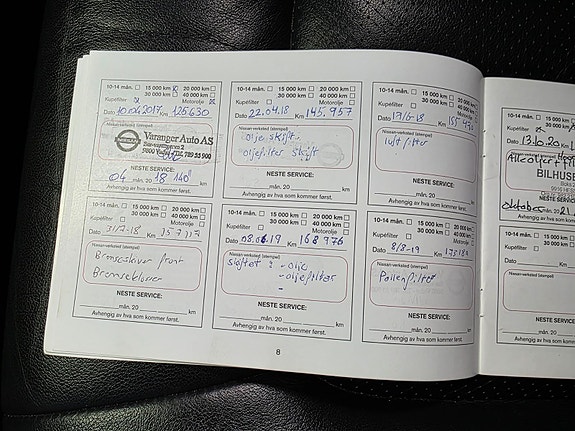 10-14 mån. 15 000 km 20 000 km
30 000 km 40 000 km
Kupéfilter Motorolje
Dato 10.04.2017 Km 125.630
Nissan-verksted (stempel)
Varanger Auto AS
NESTE SERVICE:
04 mån. 20 18 140 km
Avhengig av hva som kommer først.
10-14 mån. 15 000 km 20 000 km
30 000 km 40 000 km
Kupéfilter Motorolje
Dato 22.04.18 Km 145.957
Nissan-verksted (stempel)
olje skift.
oljefilter skift
NESTE SERVICE:
mån. 20 km
Avhengig av hva som kommer først.
10-14 mån. 15 000 km 20 000 km
30 000 km 40 000 km
Kupéfilter Motorolje
Dato Km
Nissan-verksted (stempel)
luftfilter
NESTE SERVICE:
mån. 20 km
Avhengig av hva som kommer først.
10-14 mån. 15 000 km 20 000 km
30 000 km 40 000 km
Kupéfilter Motorolje
Dato 31/7-18 Km
Nissan-verksted (stempel)
Bremseskiver front
Bremseklosser
NESTE SERVICE:
mån. 20 km
Avhengig av hva som kommer først.
10-14 mån. 15 000 km 20 000 km
30 000 km 40 000 km
Kupéfilter Motorolje
Dato 08.06.19 Km 168 976
Nissan-verksted (stempel)
skiftet : - olje
- oljefilter
-
NESTE SERVICE:
mån. 20 km
Avhengig av hva som kommer først.
10-14 mån. 15 000 km 20 000 km
30 000 km 40 000 km
Kupéfilter Motorolje
Dato 8/8-19 Km
Nissan-verksted (stempel)
Pollenfilter
NESTE SERVICE:
mån. 20 km
Avhengig av hva som kommer først.
8
10-14 mån.
Kupéfilter
Dato 13.10.20
BILHUS
NESTE
oktober 21
Avhengig av hva
10-14 mån.
Kupéfilter
Dato
Nissan-verksted
NESTE
Avhengig av